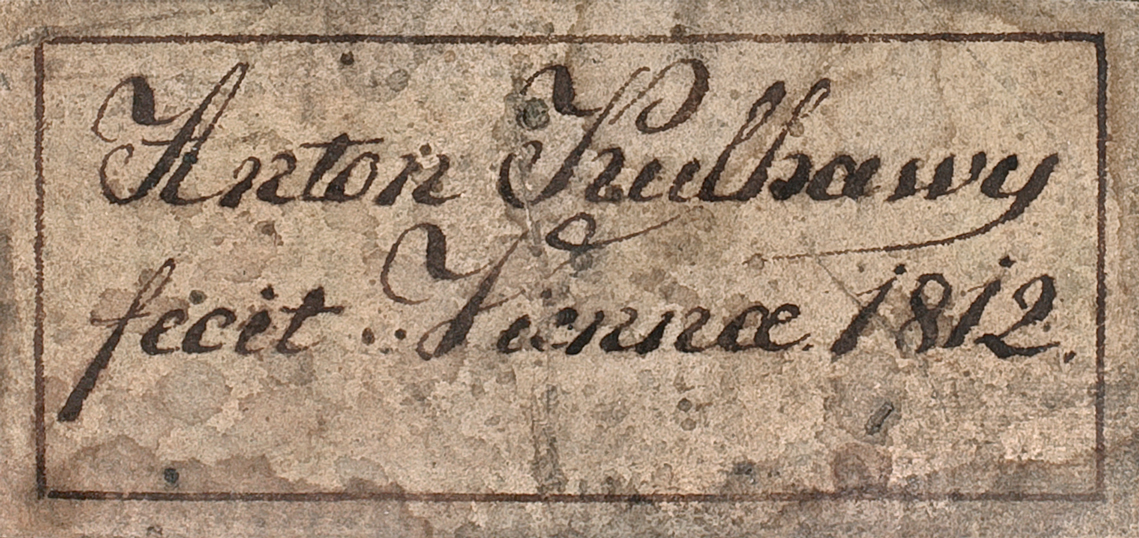 Anton Kulhawy
fecit Viennæ 1812.